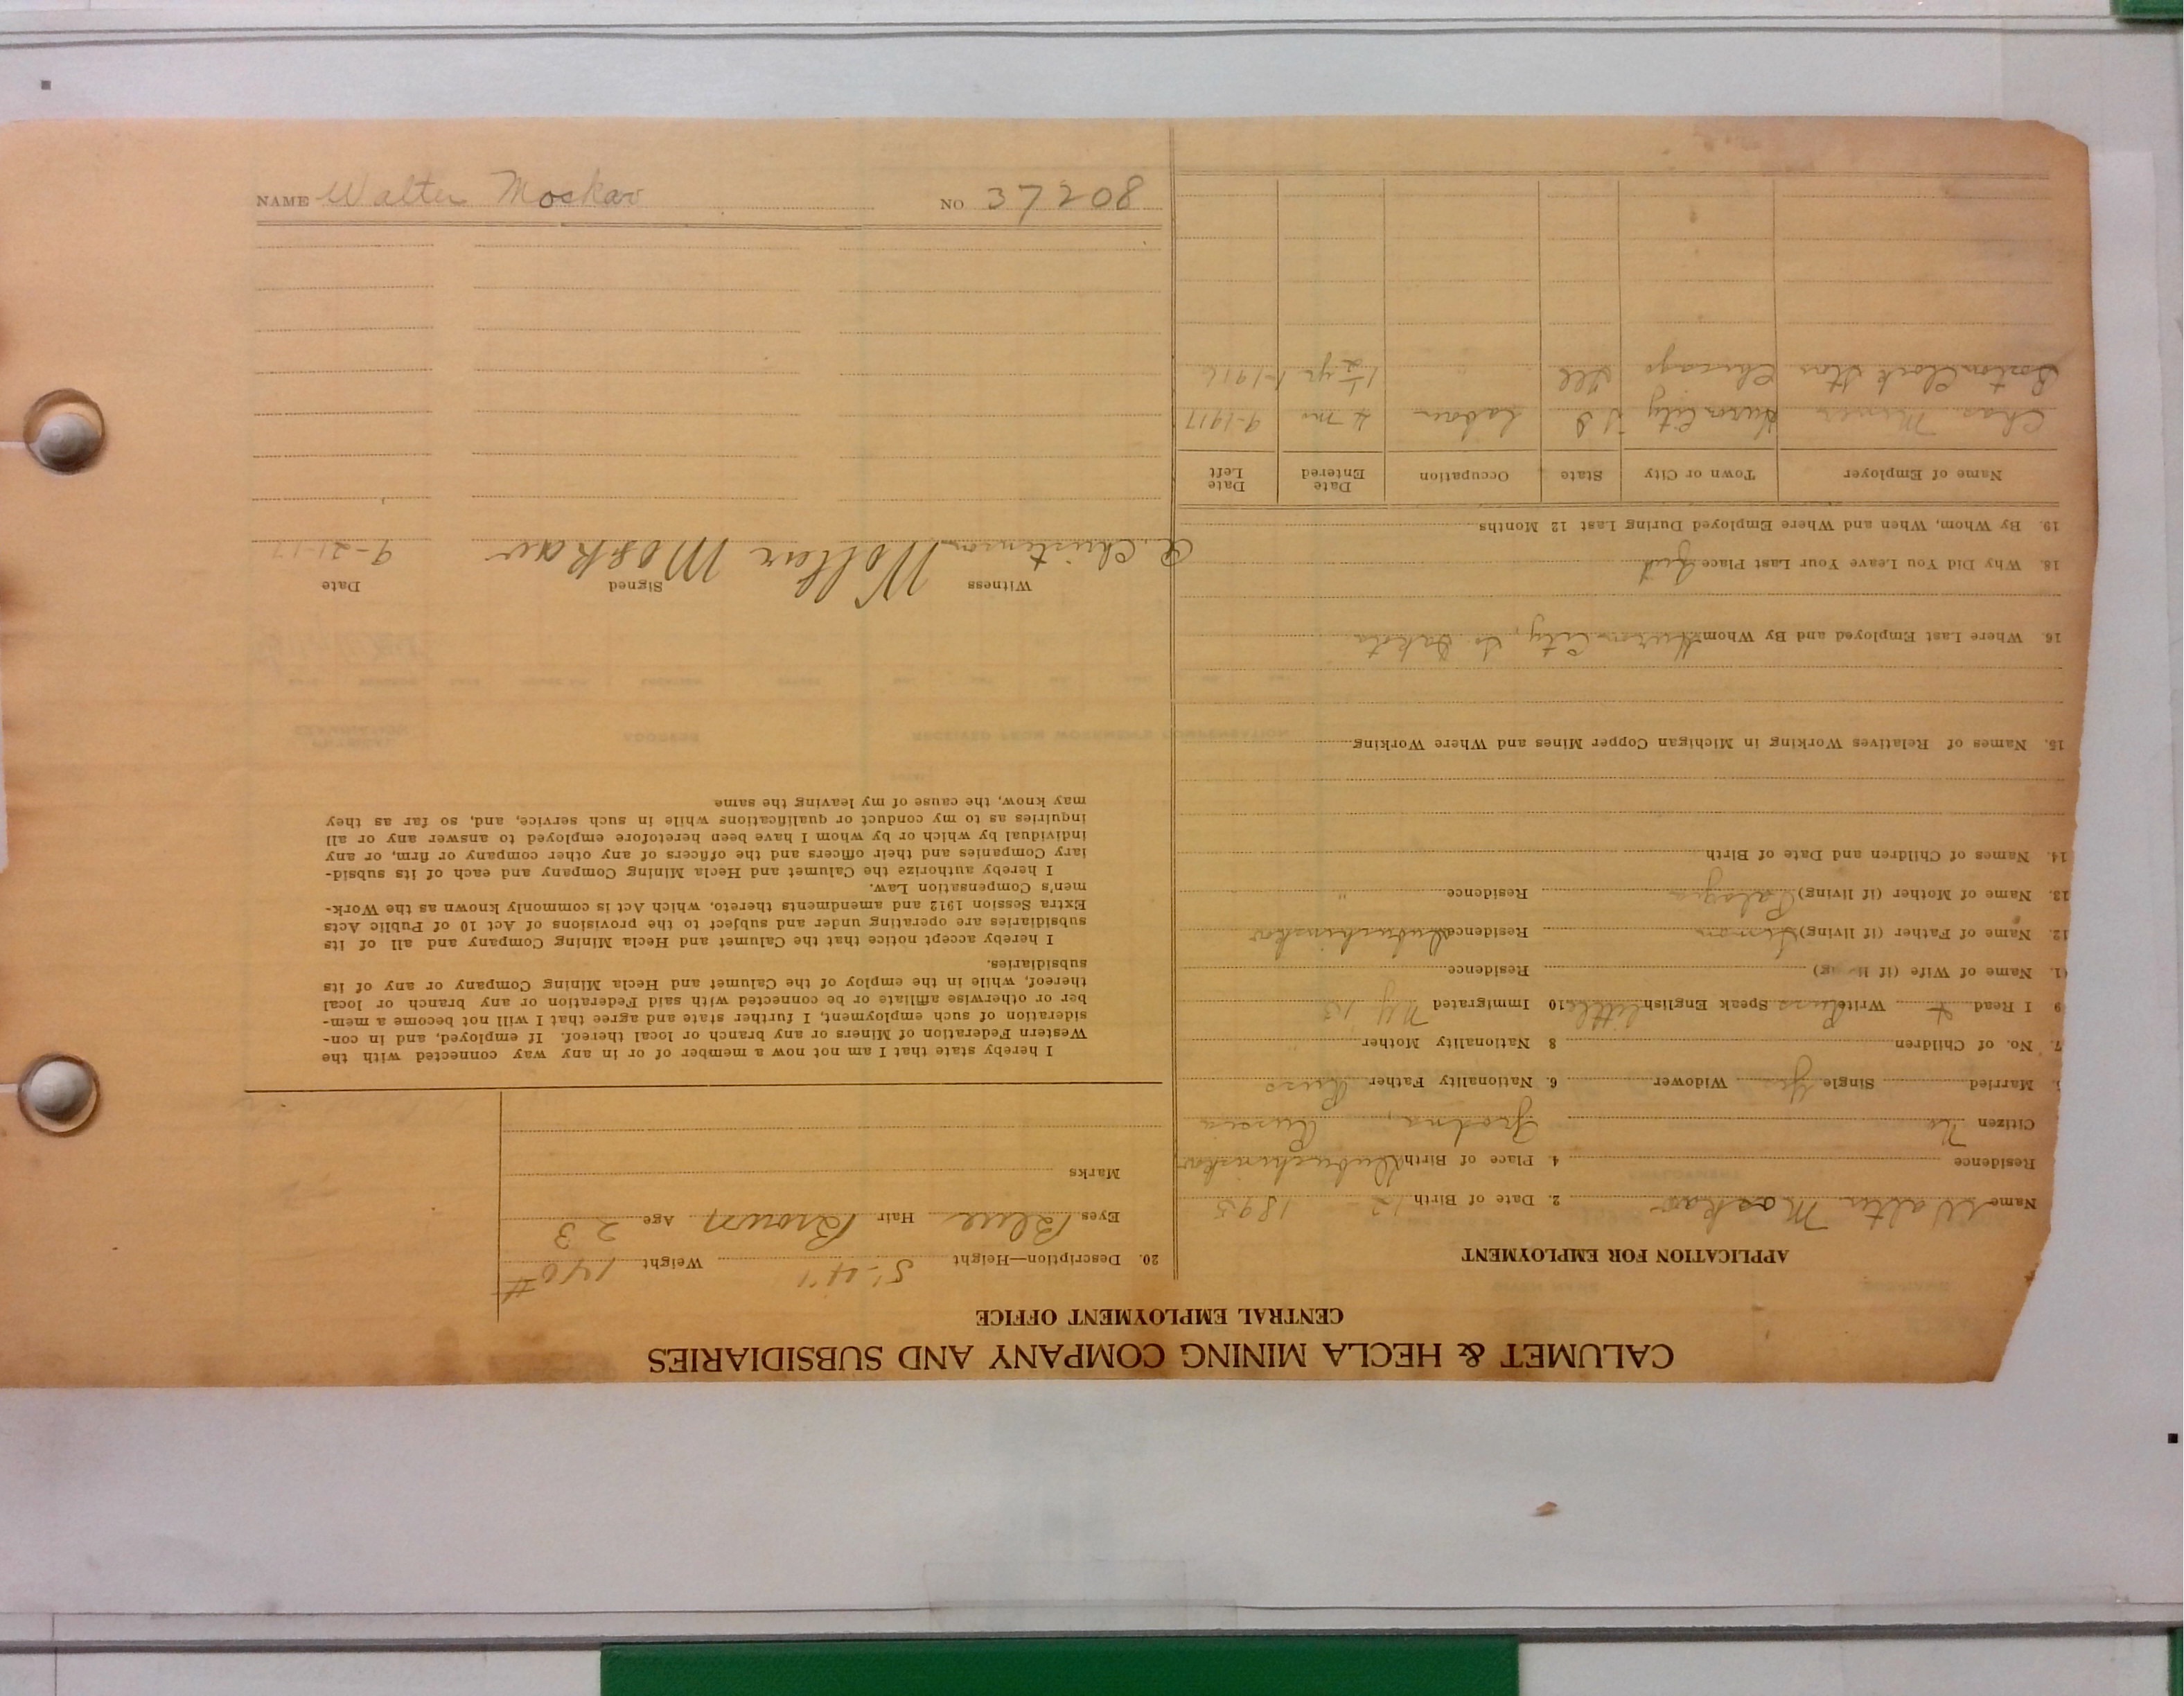 CALUMET & HECLA MINING COMPANY AND SUBSIDIARIES
CENTRAL EMPLOYMENT OFFICE
APPLICATION FOR EMPLOYMENT
Name Walter Moskav 2. Date of Birth 12 - 1895
Residence 4. Place of Birth
Citizen No Grodna, Russia
Married Single Yes Widower 6. Nationality Father Russ
7. No. of Children 8 Nationality Mother "
9 I Read Write Russ Speak English little 10 Immigrated NY 13
11. Name of Wife (if living) Residence
12. Name of Father (if living) Residence
13. Name of Mother (if living) Residence "
14. Names of Children and Date of Birth
15. Names of Relatives Working in Michigan Copper Mines and Where Working
16. Where Last Employed and By Whom Huron City, So Dakota
18. Why Did You Leave Your Last Place Quit
19. By Whom, When and Where Employed During Last 12 Months
Name of Employer Town or City State Occupation Date Entered Date Left
Chas. Huron City S D Labor 4 mo 9-1917
Boston Chicago Ill " 1 1/2 yr 1-1916
20. Description—Height 5'-4" Weight 140 #
Eyes Blue Hair Brown Age 23
Marks
I hereby state that I am not now a member of or in any way connected with the
Western Federation of Miners or any branch or local thereof. If employed, and in con-
sideration of such employment, I further state and agree that I will not become a mem-
ber or otherwise affiliate or be connected with said Federation or any branch or local
thereof, while in the employ of the Calumet and Hecla Mining Company or any of its
subsidiaries.
I hereby accept notice that the Calumet and Hecla Mining Company and all of its
subsidiaries are operating under and subject to the provisions of Act 10 of Public Acts
Extra Session 1912 and amendments thereto, which Act is commonly known as the Work-
men's Compensation Law.
I hereby authorize the Calumet and Hecla Mining Company and each of its subsid-
iary Companies and their officers and the officers of any other company or firm, or any
individual by which or by whom I have been heretofore employed to answer any or all
inquiries as to my conduct or qualifications while in such service, and, so far as they
may know, the cause of my leaving the same
Witness Signed Date
A. Christenson Woltar Moskow 9-21-17
NAME Walter Moskav NO 37208